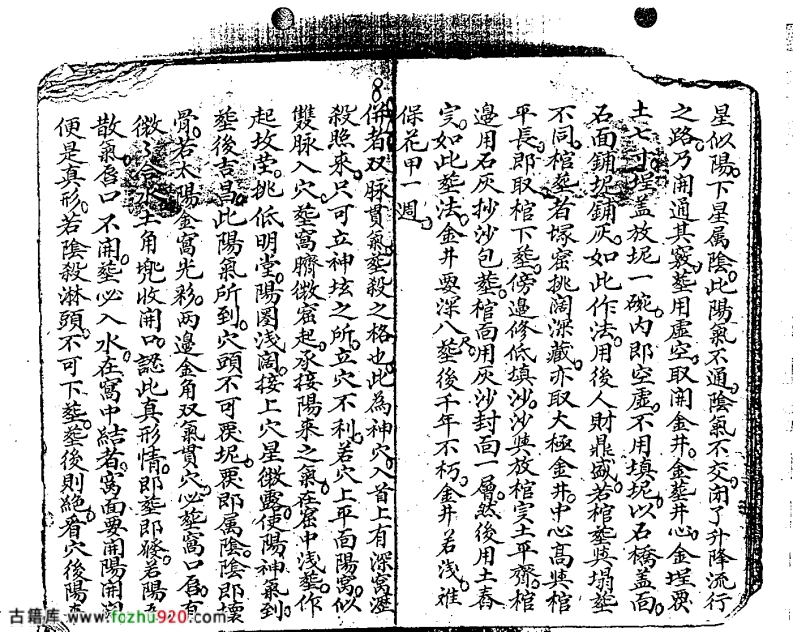 星似陽。下星属陰。此陽氣不通。陰氣不交。闭了升降流行
之路。乃開通其竅。塟用虛空。取開金井。金塟井心。金埋覆
土七寸。埋盖放坭一碗。内即空虛。不用填坭。以石橋盖面。
石面鋪坭鋪灰。如此作法。用後人財鼎盛。若棺塟與塌塟
不同。棺塟若塚窩挑阔深藏。亦取大極金井。中心高與棺
平長。即取棺下塟。傍邊修低填沙。沙與放棺完土平齊。棺
邊用石灰抄沙包塟。棺面用灰沙封面一層。然後用土舂
完。如此塟法。金井要深八尺。塟後千年不朽。金井若浅。难
保花甲一週。
併者。双脉貫氣。塟殺之格也。此為神穴。入首上有深窩。
殺照來。只可立神坛之所。立穴不利。若穴上平面陽窩。似
雙脉入穴。塟窩臍微窩起。承接陽來之氣。在窩中浅塟。作
起坟茔。挑低明堂。陽圈浅阔。接上穴星微露。使陽神氣到。
塟後吉昌。此陽氣所到。穴頭不可覆坭。覆即属陰。陰即壞
骨。若木陽金窩光彩。两邊金角双氣貫穴。必塟窩口唇。
微微 土角兜收開口。認此真形情。即塟即發。若陽
散氣唇口不開。塟必入水。在窩中結者。窩面要開陽開
便是真形。若陰殺淋頭。不可下塟。塟後則絶。看穴後陽
古籍库 www.fozhu920.com